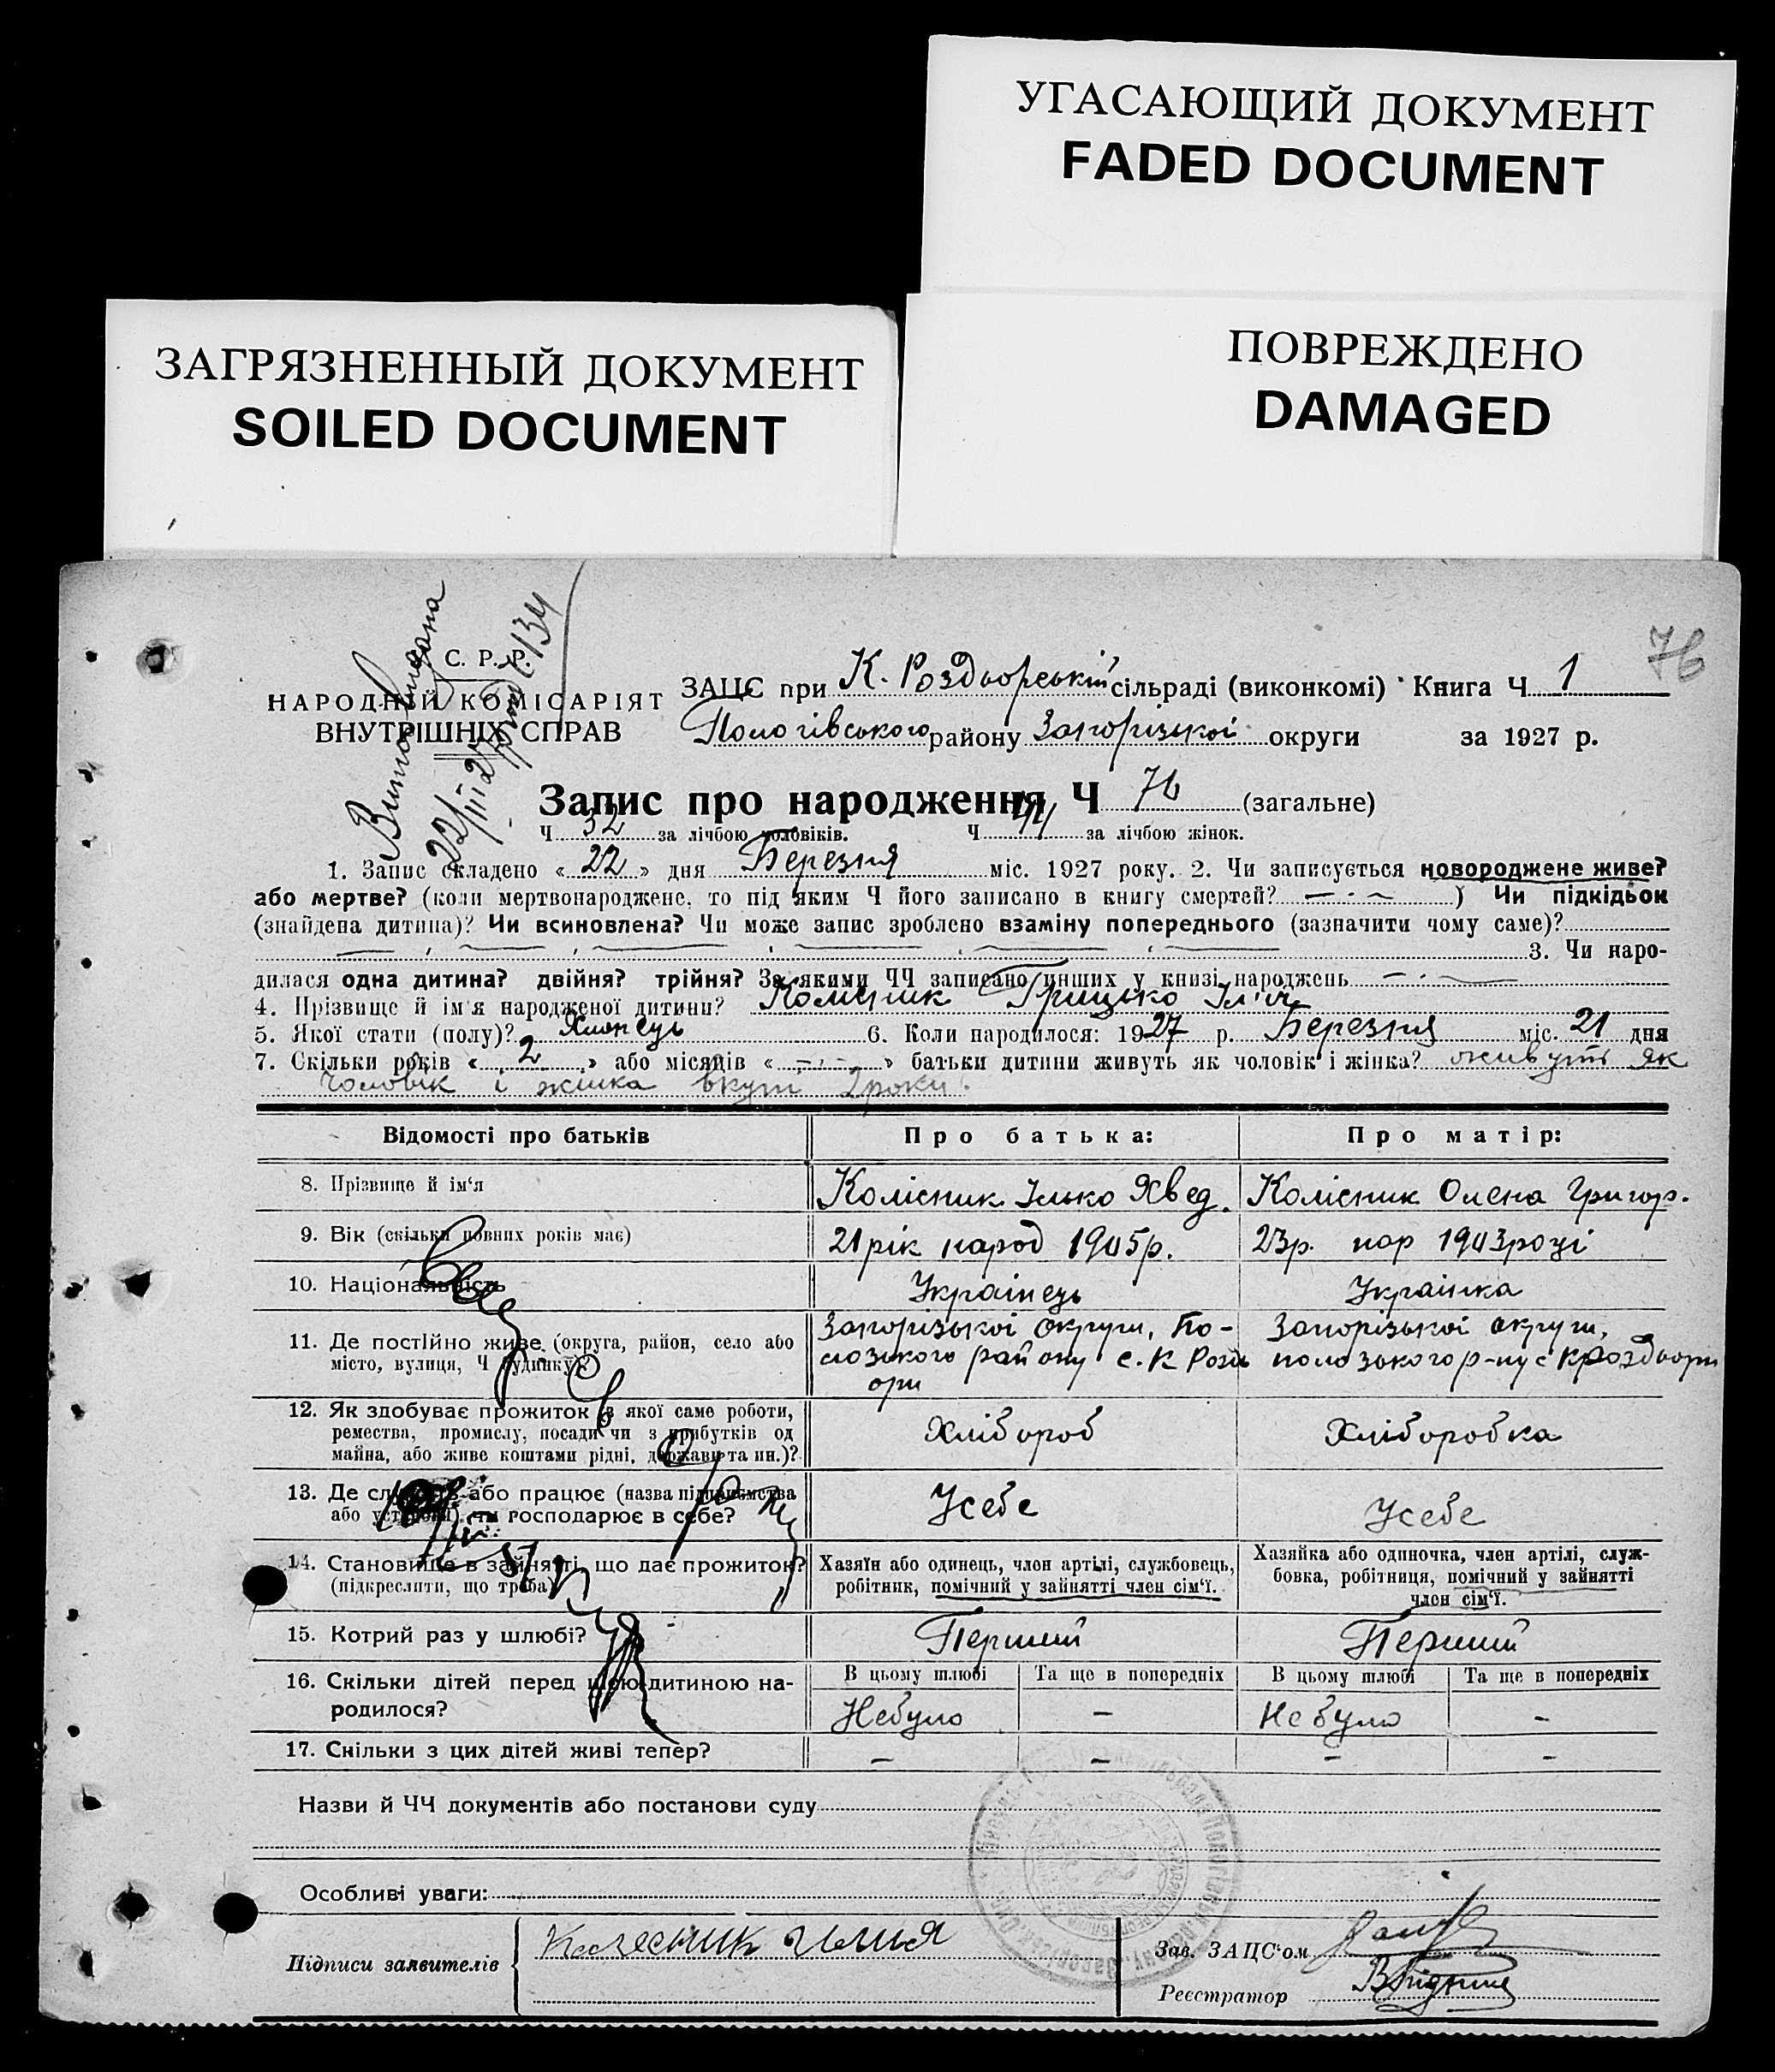 УГАСАЮЩИЙ ДОКУМЕНТ
FADED DOCUMENT
ЗАГРЯЗНЕННЫЙ ДОКУМЕНТ
SOILED DOCUMENT
ПОВРЕЖДЕНО
DAMAGED
76
С. Р. Р.
НАРОДНИЙ КОМІСАРІЯТ
ВНУТРІШНІХ СПРАВ
134
ЗАЦС при К. Роздорській сільраді (виконкомі) Книга Ч 1
Пологівського району Запорізької округи за 1927 р.
Запис про народження Ч 76 (загальне)
Ч 32 за лічбою чоловіків. Ч 44 за лічбою жінок.
1. Запис складено « 22 » дня Березня міс. 1927 року. 2. Чи записується новороджене живе?
або мертве? (коли мертвонароджене, то під яким Ч його записано в книгу смертей? — · — ) Чи підкідьок
(знайдена дитина)? Чи всиновлена? Чи може запис зроблено взаміну попереднього (зазначити чому саме)?
3. Чи наро-
дилася одна дитина? двійня? трійня? За якими ЧЧ записано инших у книзі народжень — · —
4. Прізвище й ім'я народженої дитини? Колісник Грицько Ілліч
5. Якої стати (полу)? Хлопець 6. Коли народилося: 1927 р. Березня міс. 21 дня
7. Скільки років « 2 » або місяців « — · — » батьки дитини живуть як чоловік і жінка? живуть як
чоловік і жінка вкупі 2 роки.
Відомості про батьків Про батька: Про матір:
8. Прізвище й ім'я Колісник Ілько Хвед. Колісник Олена Григор.
9. Вік (скільки повних років має) 21 рік народ 1905р. 23р. нар 1903 році
10. Національність Українець Українка
11. Де постійно живе (округа, район, село або Запорізької округи, По- Запорізької округи,
місто, вулиця, Ч будинку)? лозького району с. К Розд полозького р-ну с К Роздори
ори
12. Як здобуває прожиток (з якої саме роботи,
ремества, промислу, посади чи з прибутків од Хлібороб Хліборобка
майна, або живе коштами рідні, держави та ин.)?
13. Де служить або працює (назва підприємства Усебе Усебе
або установи), чи господарює в себе?
14. Становище в зайнятті, що дає прожиток? Хазяїн або одинець, член артілі, службовець, Хазяйка або одиночка, член артілі, служ-
(підкреслити, що треба) робітник, помічний у зайнятті член сім'ї. бовка, робітниця, помічний у зайнятті
член сім'ї.
15. Котрий раз у шлюбі? Перший Перший
16. Скільки дітей перед цією дитиною на- В цьому шлюбі Та ще в попередніх В цьому шлюбі Та ще в попередніх
родилося? Небуло — Небуло —
17. Скільки з цих дітей живі тепер? — — — —
Назви й ЧЧ документів або постанови суду
Особливі уваги:
Підписи заявителів Колесник Илия
Зав. ЗАЦС'ом
Реєстратор